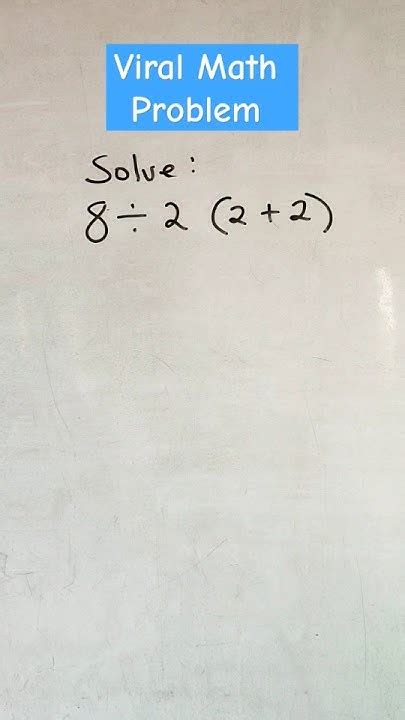 Viral Math
Problem
Solve:
8÷2 (2+2)